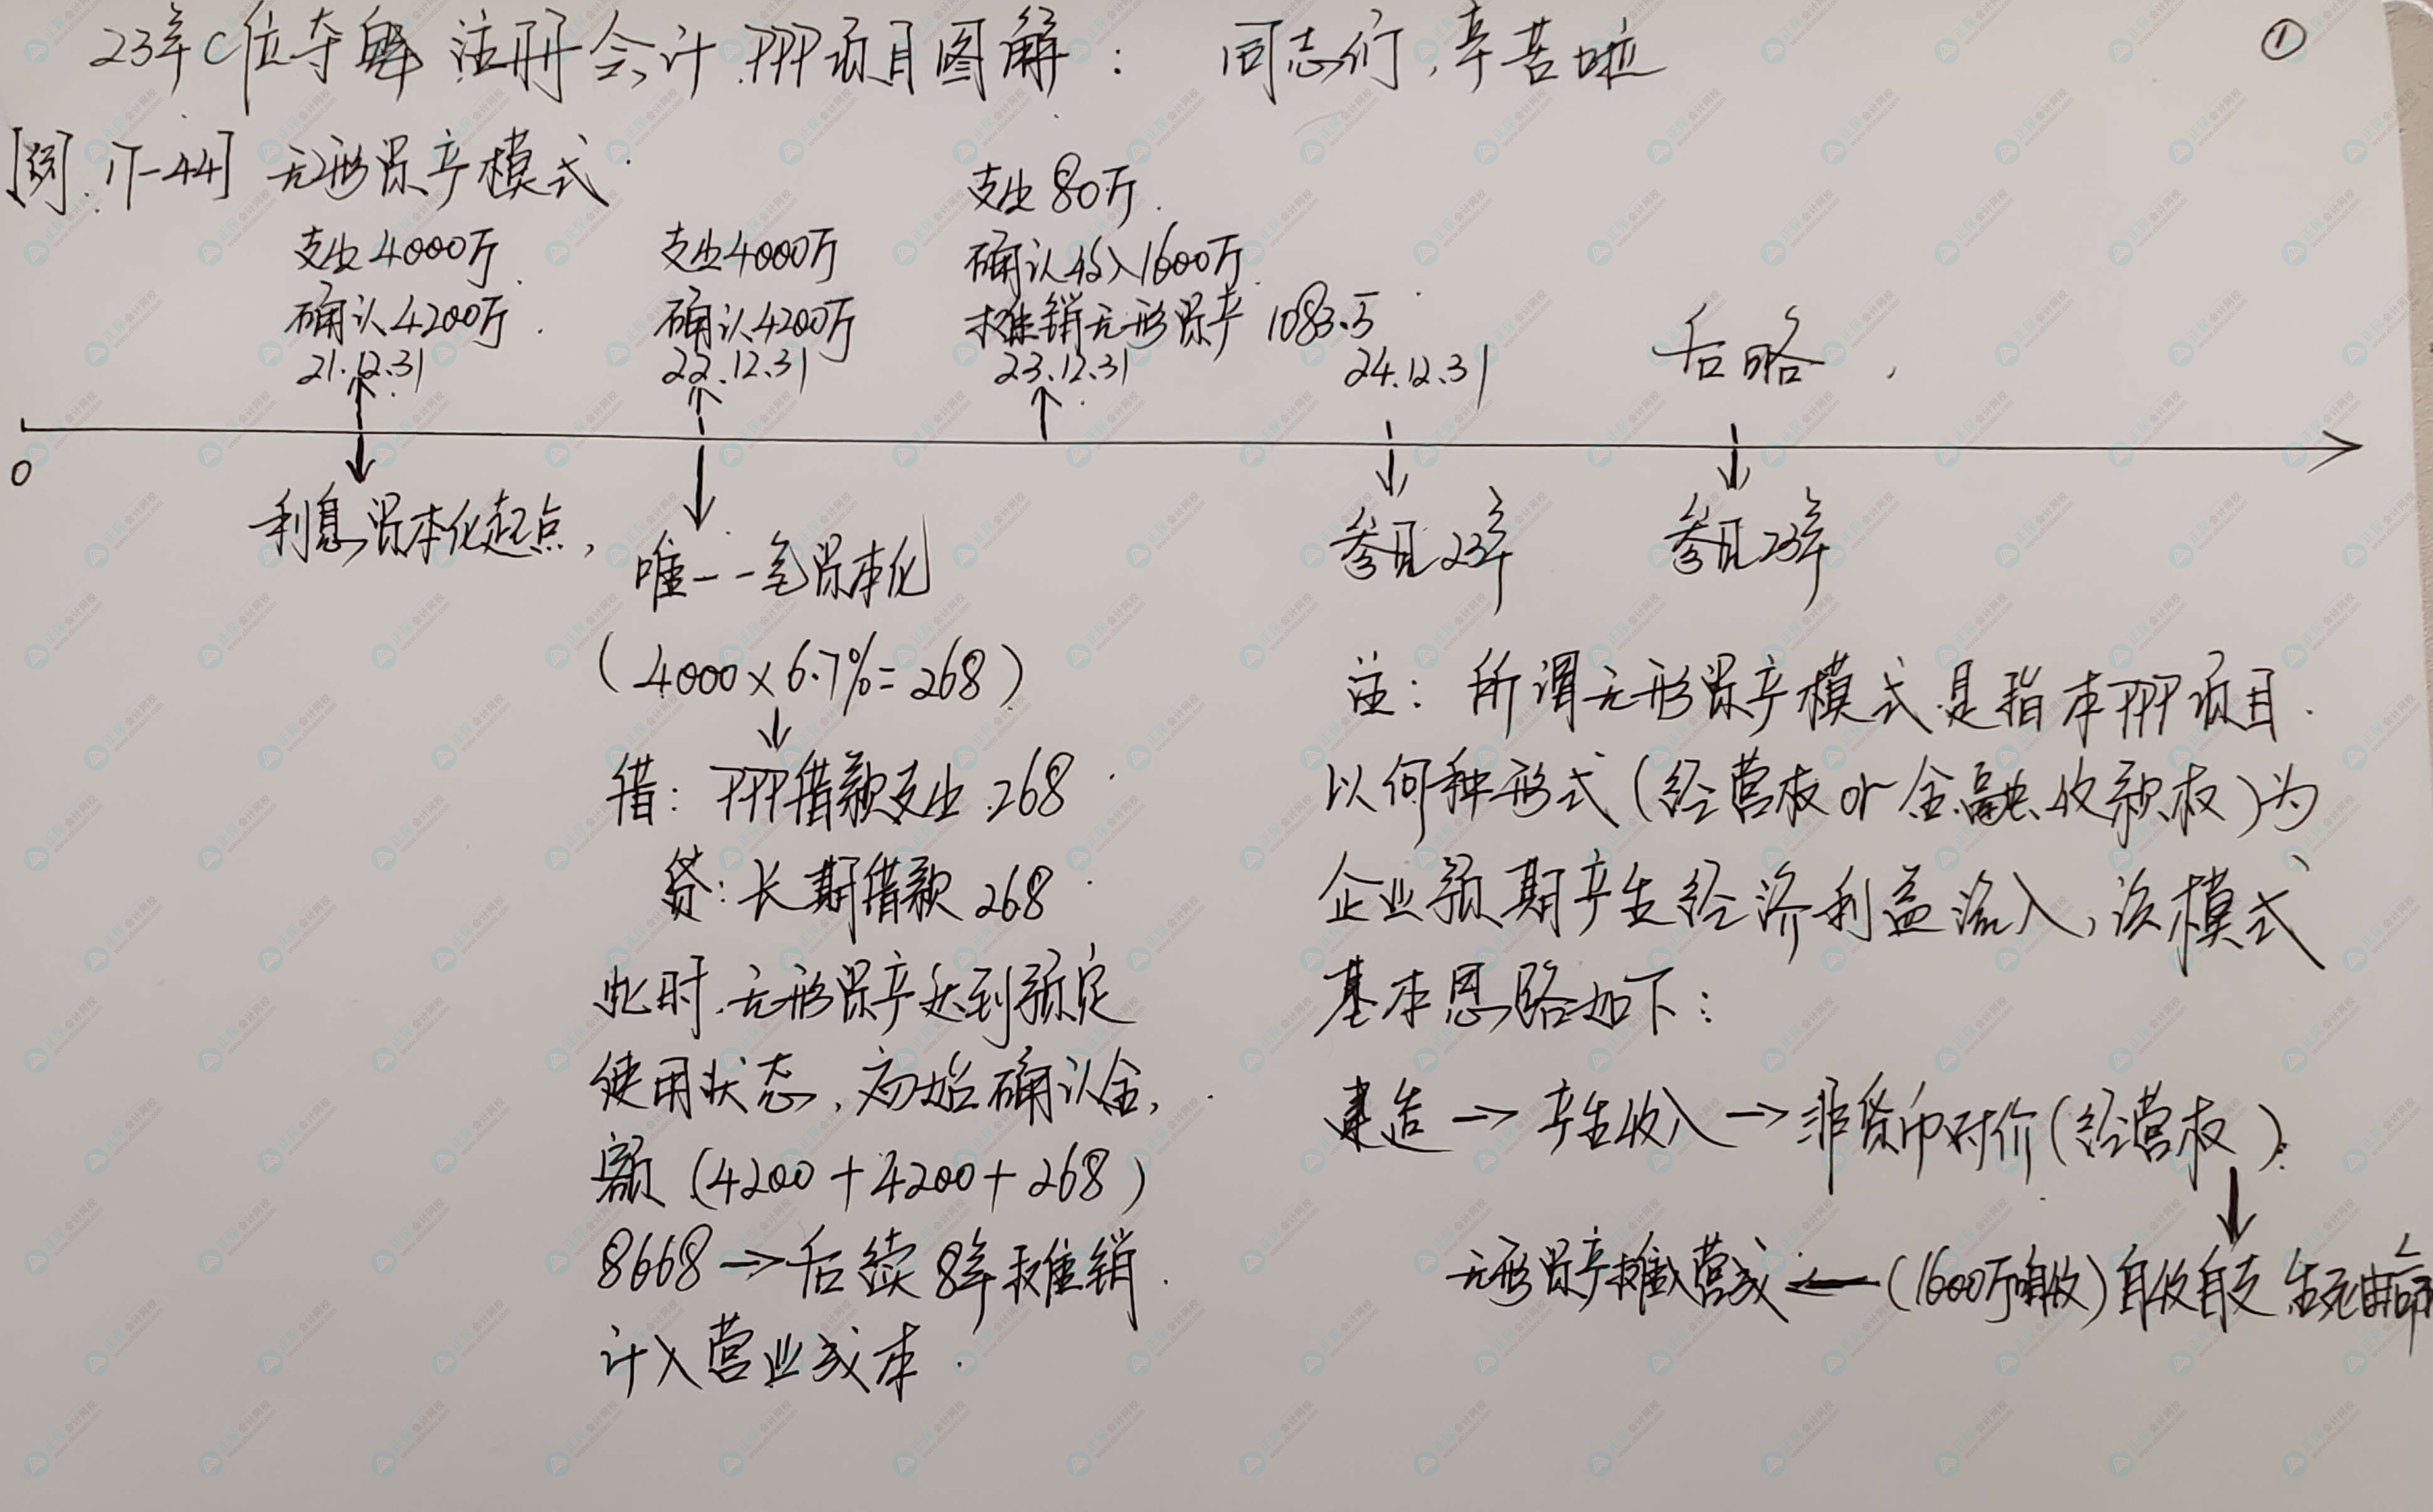 23年C位夺魁 注册会计 PPP项目图解： 同志们，辛苦啦
①
[例.17-44] 无形资产模式
支出4000万
确认4200万
21.12.31
支出4000万
确认4200万
22.12.31
支出80万
确认收入1600万
摊销无形资产 1083.5
23.12.31
24.12.31
后略
0
利息资本化起点，
唯一一笔资本化
(4000×6.7%=268)
借：PPP借款支出 268
贷：长期借款 268
此时，无形资产达到预定
使用状态，初始确认金
额 (4200+4200+268)
8668→后续8年摊销
计入营业成本
参见23年
参见23年
注：所谓无形资产模式是指本PPP项目
以何种形式(经营权or金融收款权)为
企业预期产生经济利益流入，该模式
基本思路如下：
建造→产生收入→非货币对价(经营权)
↓
无形资产摊入营成←(1600万自收)自收自支 生死由命